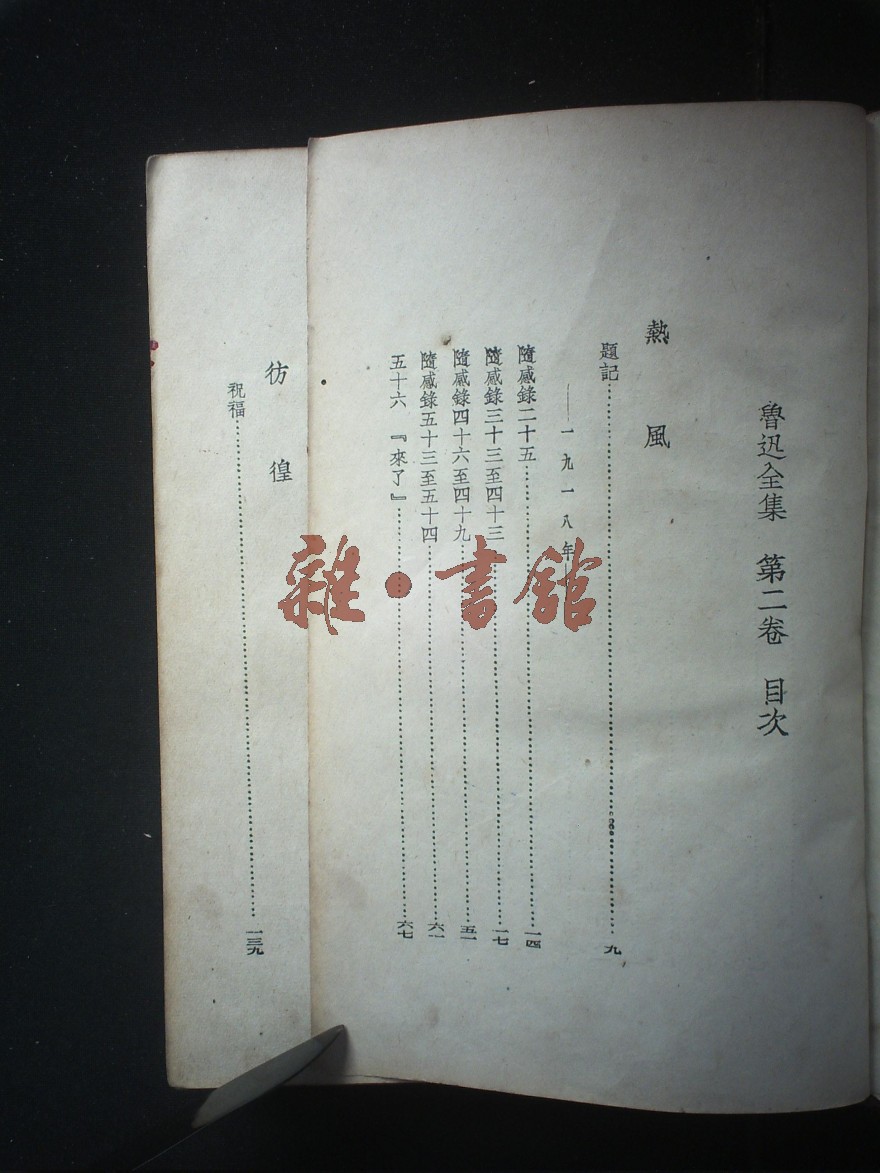 魯迅全集 第二卷 目次
熱風
題記……九
——一九一八年
隨感錄二十五……一四
隨感錄三十三至四十三……一七
隨感錄四十六至四十九……五一
隨感錄五十三至五十四……六一
五十六 『來了』……六七
彷徨
祝福……一三九
雜·書館